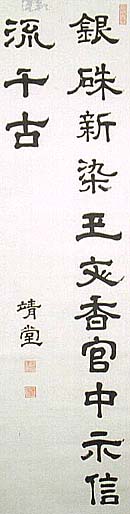 銀硃新染玉香官中示信
流千古
靖堂